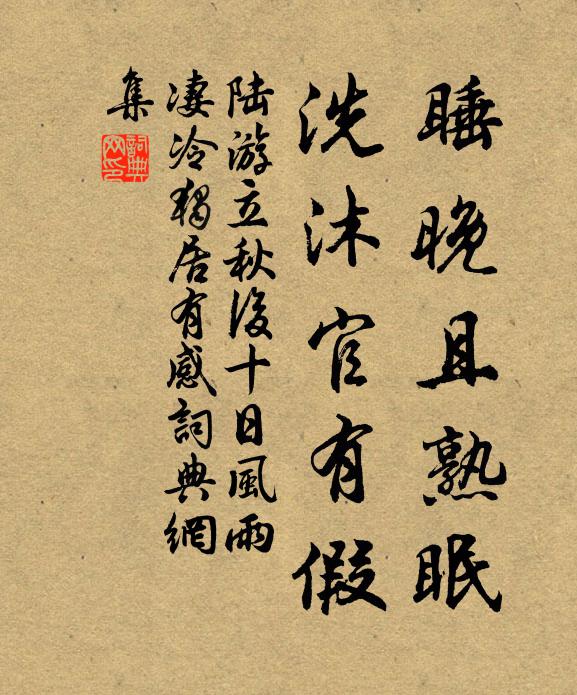 睡晚且熟眠
洗沐官有假
陆游立秋後十日風雨
凄冷獨居有感詞典網
集
詞典網印